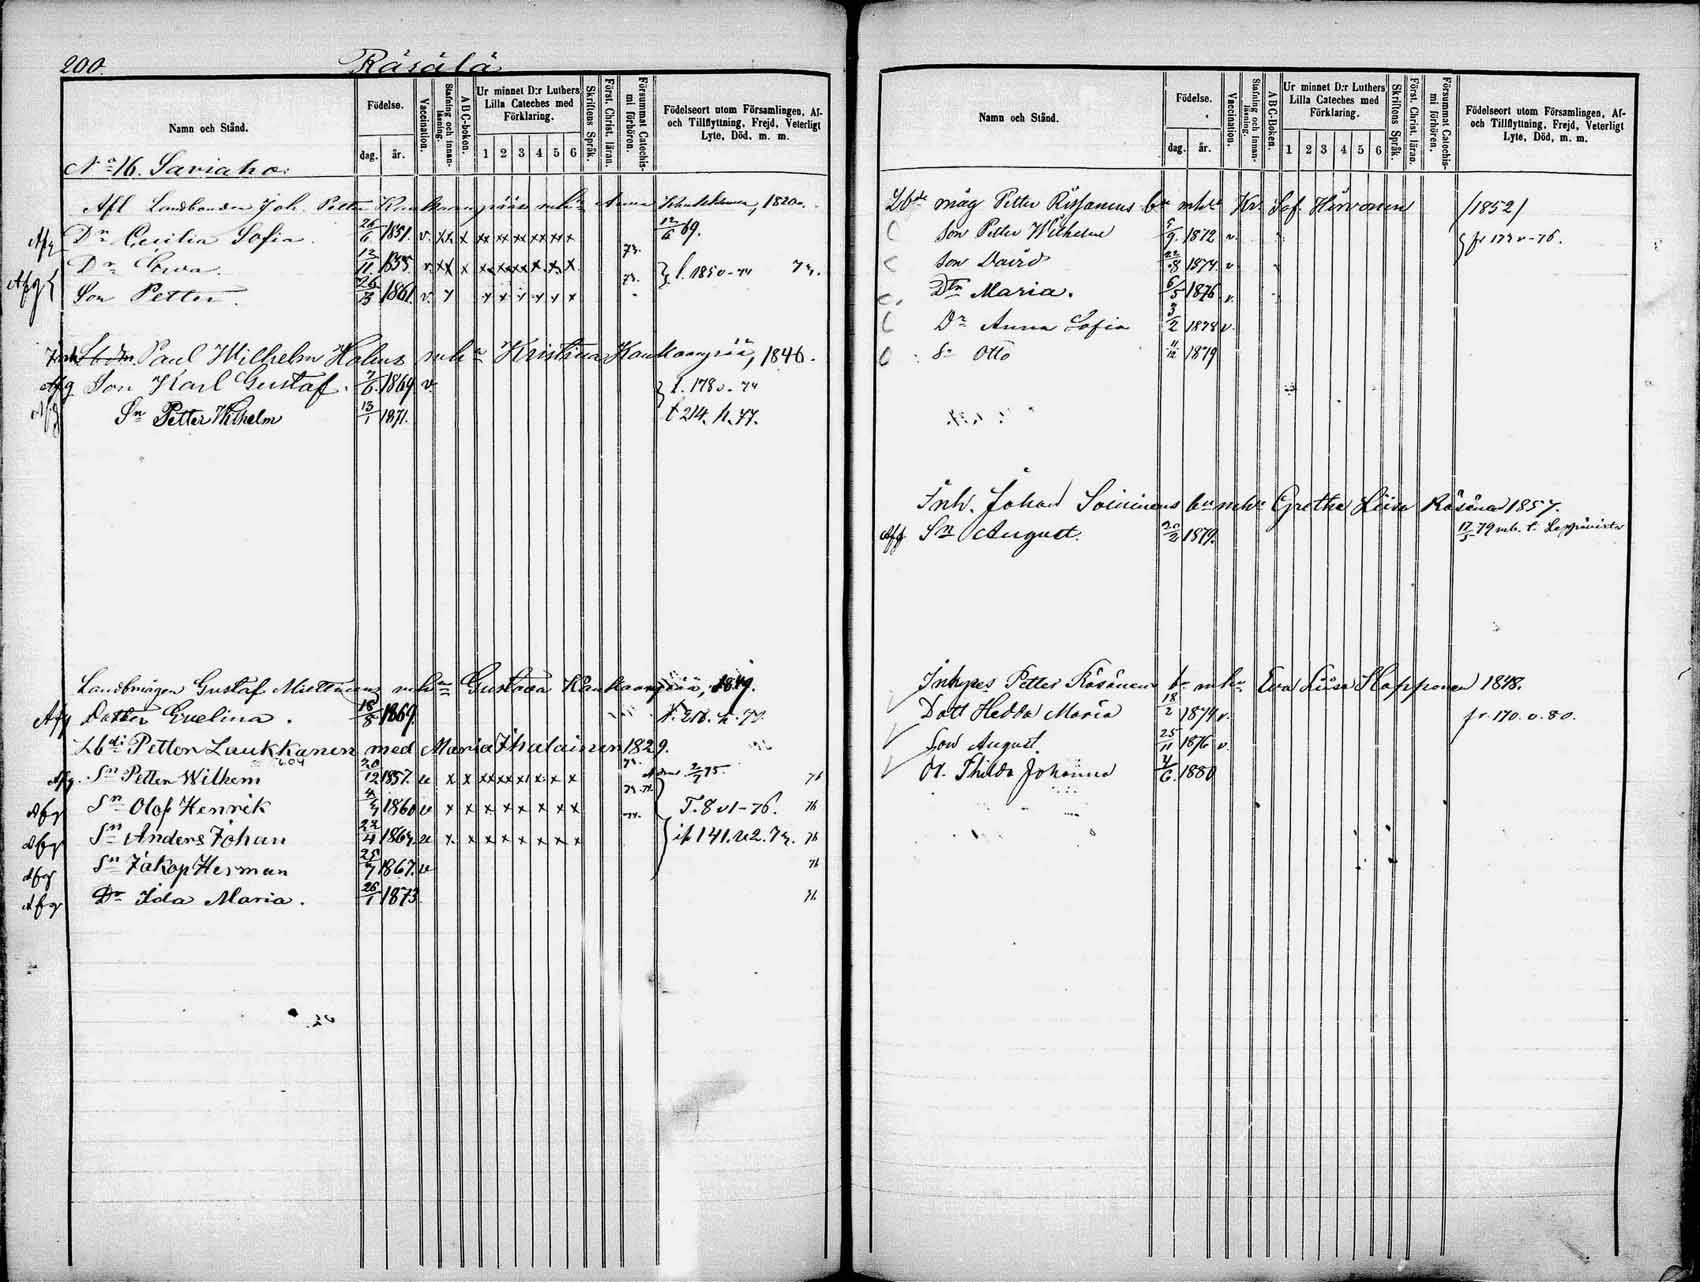 200.
Räsälä
Namn och Stånd.
Födelse.
dag. år.
Vaccination.
Stafning och innanläsning.
ABC-boken.
Ur minnet D:r Luthers Lilla Cateches med Förklaring.
1 2 3 4 5 6
Skriftens Språk.
Först. Christ. läran.
Försummat Catechismi förhören.
Födelseort utom Församlingen, Af- och Tillflyttning, Frejd, Veterligt Lyte, Död, m. m.
No 16. Saviaho.
Afl Landbonden Joh. Petter Kankaanpään mhu Anna 1820.
Afg Dr Cecilia Sofia. 1851. v. xx x xx xx xx xx 12/6 69.
Afg Dr Eva. 12/11 1855. v. xx x x xxxx x x x 73. f. 1850-74
Son Petter. 26/3 1861. v. x x x x x x x
Paul Wilhelm Holms mhu Kristina Kankaanpää, 1846.
Afg Son Karl Gustaf. 7/6 1869 v. f. 178 v. 74
Afg Sn Petter Wilhelm 13/1 1871. t 214. h. 77.
Landbmågen Gustaf Miettinens mhu Gustava Kankaanpää, 1849.
Afg Dotter Evelina. 18/8 1869.
Lbdi Petter Laukkanen med Maria Ihalainen 1829.
Afg. Sn Petter Wilhem 20/12 1857. v x x xx xx x x x 76
Afg Sn Olof Henrik 1860 v x x x x x x x x T. 8 v1-76. 76
Afg Sn Anders Johan 22/4 1864. v x x x x x x x x 141. 76
Afg Sn Jakop Herman 25/7 1867. v 76
Afg Dr Ida Maria. 26/1 1873 76
Namn och Stånd.
Födelse.
dag. år.
Vaccination.
Stafning och innanläsning.
ABC-boken.
Ur minnet D:r Luthers Lilla Cateches med Förklaring.
1 2 3 4 5 6
Skriftens Språk.
Först. Christ. läran.
Försummat Catechismi förhören.
Födelseort utom Församlingen, Af- och Tillflyttning, Frejd, Veterligt Lyte, Död, m. m.
Lbde måg Petter Rissanens bn mhu Kr. Sof. Hirvonen /1852/
Son Petter Wilhelm 5/9. 1872 v. fr 173 v-76.
Son David 22/8 1874 v
Dtr Maria. 6/5 1876 v.
Dr Anna Sofia 3/2 1878 v.
Sn Otto 11/12 1879
Inh. Johan Soininens bn mhu Gretha Liisa Räsäna 1857.
Afg Sn August. 20/2 1879. 17/5 79 mb. t.
Inhyses Petter Räsänen bn mhu Eva Liisa Happonen 1848.
Dott Hedda Maria 18/2 1874 v. fr. 170. v. 80.
Son August. 25/11 1876 v
D. Thilda Johanna 4/6 1880